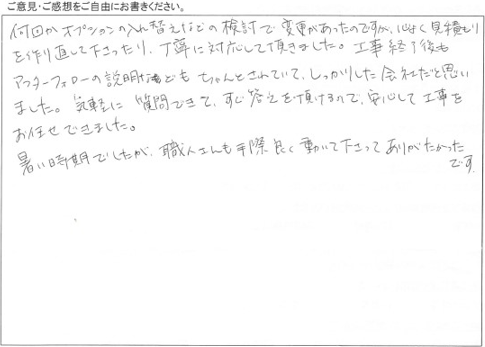 ご意見・ご感想をご自由にお書きください。
何回かオプションの入れ替えなどの検討で変更があったのですが、心よく見積もり
を作り直して下さったり、丁寧に対応して頂きました。工事終了後も
アフターフォローの説明などもちゃんとされていて、しっかりした会社だと思い
ました。気軽に質問できて、すぐ答えを頂けるので、安心して工事を
お任せできました。
暑い時期でしたが、職人さんも手際良く動いて下さってありがたかった
です。